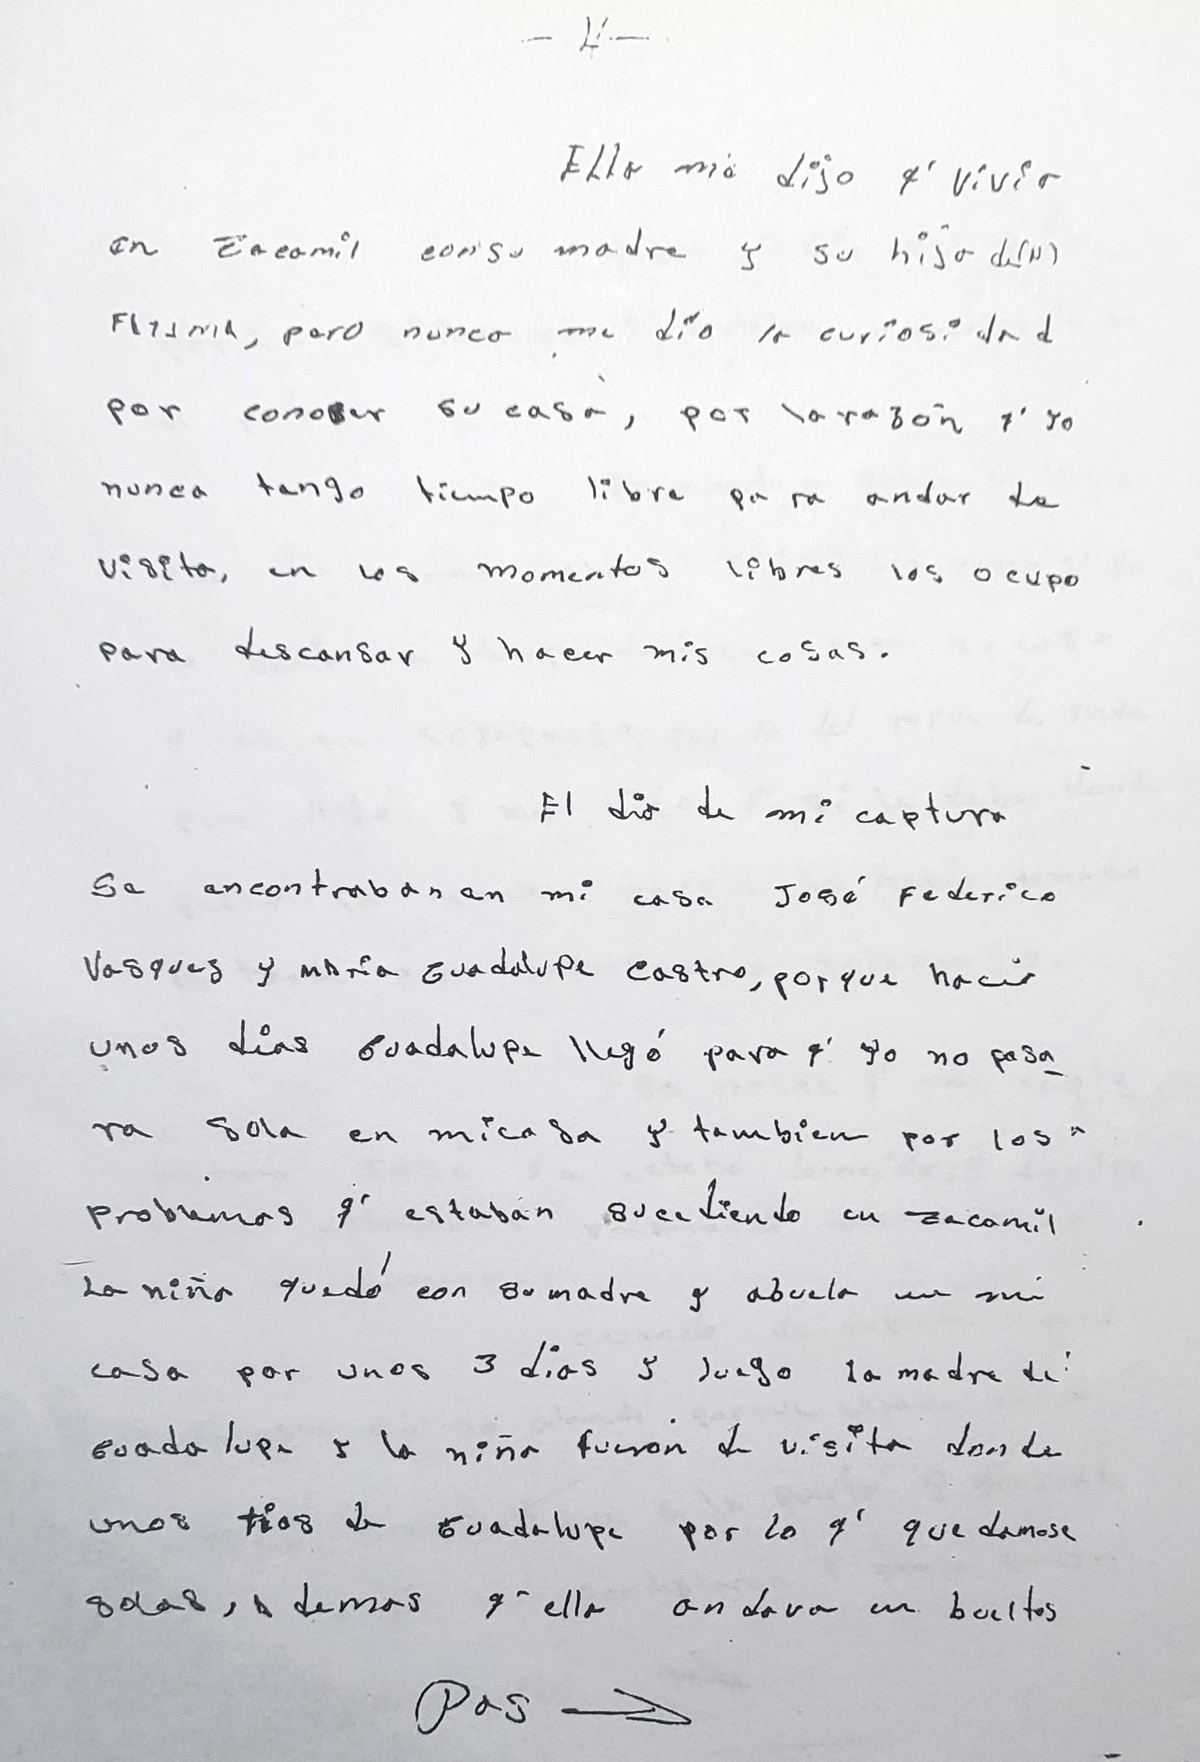 - 4 -
Ella me dijo q' vivia
en Zacamil con su madre y su hija de (N)
FATIMA, pero nunca me dio la curiosidad
por conocer su casa, por la razón q' yo
nunca tengo tiempo libre para andar de
visita, en los momentos libres los ocupo
para descansar y hacer mis cosas.
El dia de mi captura
se encontraban en mi casa José Federico
Vasquez y María Guadalupe Castro, porque hacia
unos dias Guadalupe llegó para q' yo no pasa_
ra sola en mi casa y tambien por los
problemas q' estaban sucediendo en Zacamil
La niña quedó con su madre y abuela en mi
casa por unos 3 dias y luego la madre de
Guadalupe y la niña fueron de visita donde
unos tios de Guadalupe por lo q' quedamose
solas, ademas q' ella andava en bueltos
Pas →